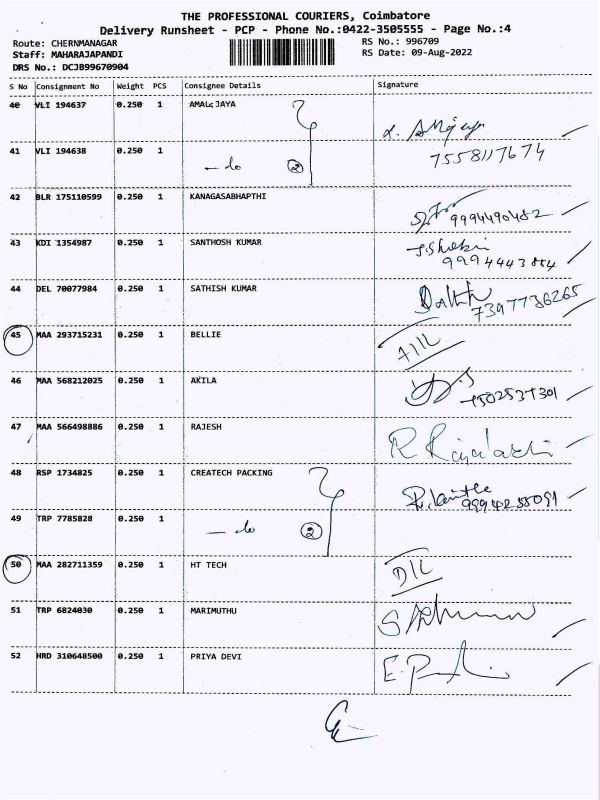 THE PROFESSIONAL COURIERS, Coimbatore
Delivery Runsheet - PCP - Phone No.:0422-3505555 - Page No.:4
Route: CHERNMANAGAR
RS No.: 996709
Staff: MAHARAJAPANDI
RS Date: 09-Aug-2022
DRS No.: DCJB99670904
S No Consignment No Weight PCS Consignee Details Signature
40 VLI 194637 0.250 1 AMAL JAYA
41 VLI 194638 0.250 1 - do ② 7558117674
42 BLR 175110599 0.250 1 KANAGASABHAPTHI 9994490482
43 KDI 1354987 0.250 1 SANTHOSH KUMAR
44 DEL 70077984 0.250 1 SATHISH KUMAR 7397736265
45 MAA 293715231 0.250 1 BELLIE
46 MAA 568212025 0.250 1 AKILA
47 MAA 566498886 0.250 1 RAJESH
48 RSP 1734825 0.250 1 CREATECH PACKING
49 TRP 7785828 0.250 1 - do ②
50 MAA 282711359 0.250 1 HT TECH
51 TRP 6824030 0.250 1 MARIMUTHU
52 HRD 310648500 0.250 1 PRIYA DEVI